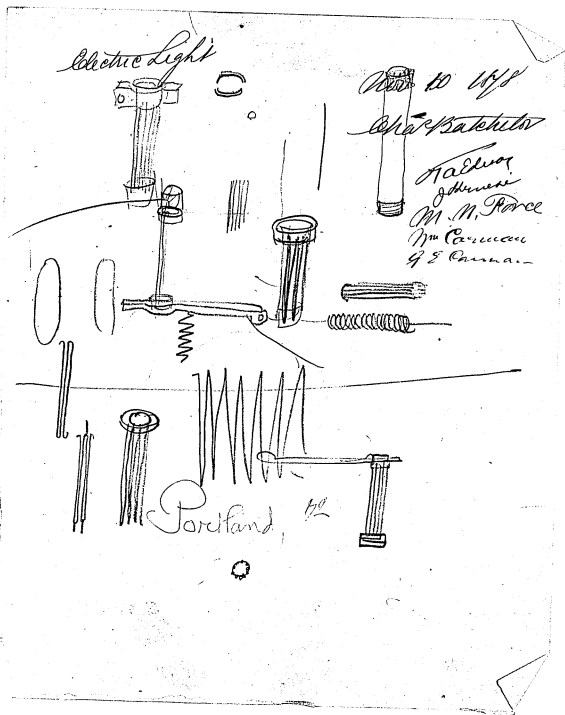 Electric Light
Nov 10 1878
Chas Batchelor
T a Edison
M. N. Force
Wm Carman
G E Carman
Portland